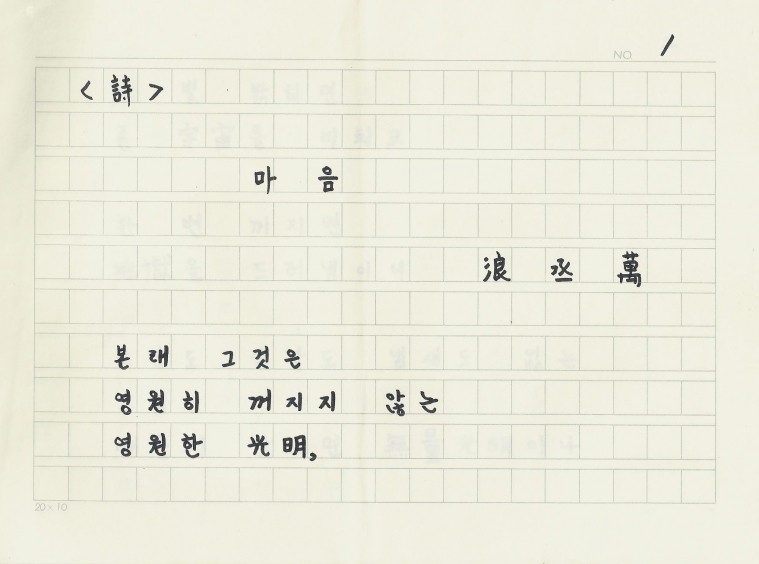 NO. 1
< 詩 >
마 음
浪 丞 萬
본래 그것은
영원히 꺼지지 않는
영원한 光明,
20×10